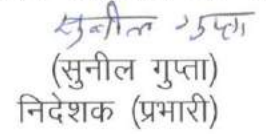 सुनील गुप्ता
(सुनील गुप्ता)
निदेशक (प्रभारी)